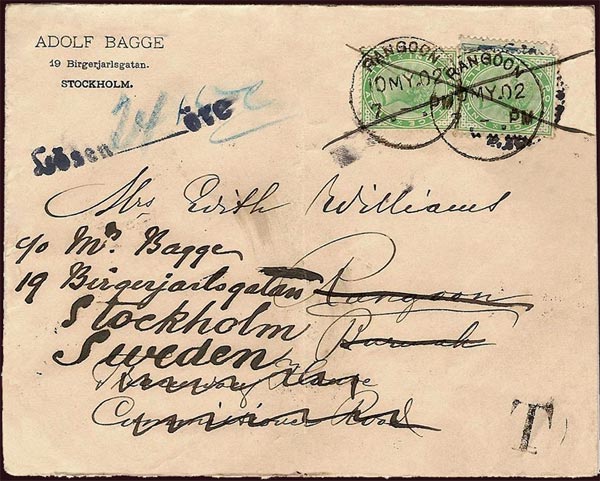 ADOLF BAGGE
19 Birgerjarlsgatan.
STOCKHOLM.
Lösen 24 öre
RANGOON
MY.02
PM
RANGOON
MY.02
PM
Mrs Edith Williams
c/o Mrs Bagge
19 Birgerjarlsgatan
Rangoon
Stockholm
Burmah
Sweden
Road
T